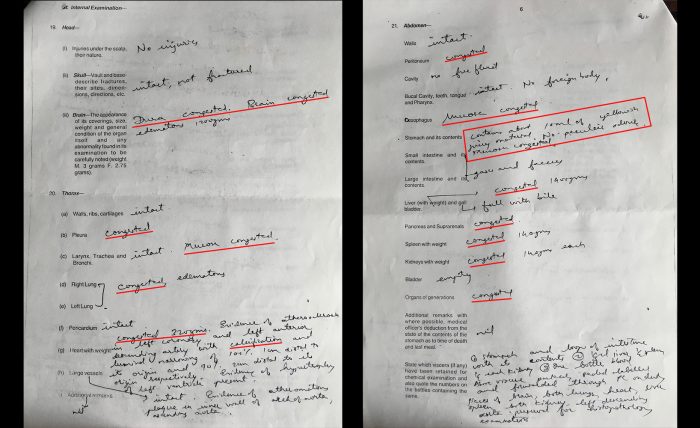 Internal Examination—
19. Head—
(i) Injuries under the scalp, their nature.
No injuries
(ii) Skull—Vault and base- describe fractures, their sites, dimensions, directions, etc.
intact, not fractured
(iii) Brain—The appearance of its coverings, size, weight and general condition of the organ itself and any abnormality found in its examination to be carefully noted (weight M. 3 grams F. 2.75 grams).
Dura congested. Brain congested
edematous 1200gms
20. Thorax—
(a) Walls, ribs, cartilages
intact
(b) Pleura
congested
(c) Larynx, Trachea and Bronchi.
intact. Mucosa congested.
(d) Right Lung
congested, edematous
(e) Left Lung
(f) Pericardium
intact
(g) Heart with weight
congested 320gms. Evidence of atherosclerosis
in left coronary and left anterior
descending artery with calcification and
luminal narrowing of 100%, 1cm distal to
its origin and 90%, 2cm distal to its
origin respectively. Evidence of hypertrophy
of left ventricle present.
(h) Large vessels
intact. Evidence of atheromatous
plaque in inner wall of arch of aorta,
(i) Additional remarks
nil
6
21. Abdomen—
Walls
intact.
Peritoneum
congested
Cavity
no free fluid
Bucal Cavity, teeth, tongue and Pharynx.
intact. No foreign body,
Oesophagus
Mucosa congested
Stomach and its contents
contains about 200ml of yellowish
material, No peculiar odour
mucosa congested
Small intestine and its contents.
gases and faeces
Large intestine and its contents.
Liver (with weight) and gall bladder.
congested 1400gms
full with bile
Pancreas and Suprarenals
congested
Spleen with weight
congested 140gms
Kidneys with weight
congested 140gms each
Bladder
empty
Organs of generations
congested
Additional remarks with where possible, medical officer's deduction from the state of the contents of the stomach as to time of death and last meal.
nil
State which viscera (if any) have been retained for chemical examination and also quote the numbers on the bottles containing the same.
① Stomach and loop of intestine
with contents ② liver, spleen
& each kidney ③ one bottle blood
Above viscera sealed labelled
and forwarded through PC on duty,
pieces of brain, both lungs, heart, liver
spleen, both kidney, left descending
aorta preserved for histopathology
examination